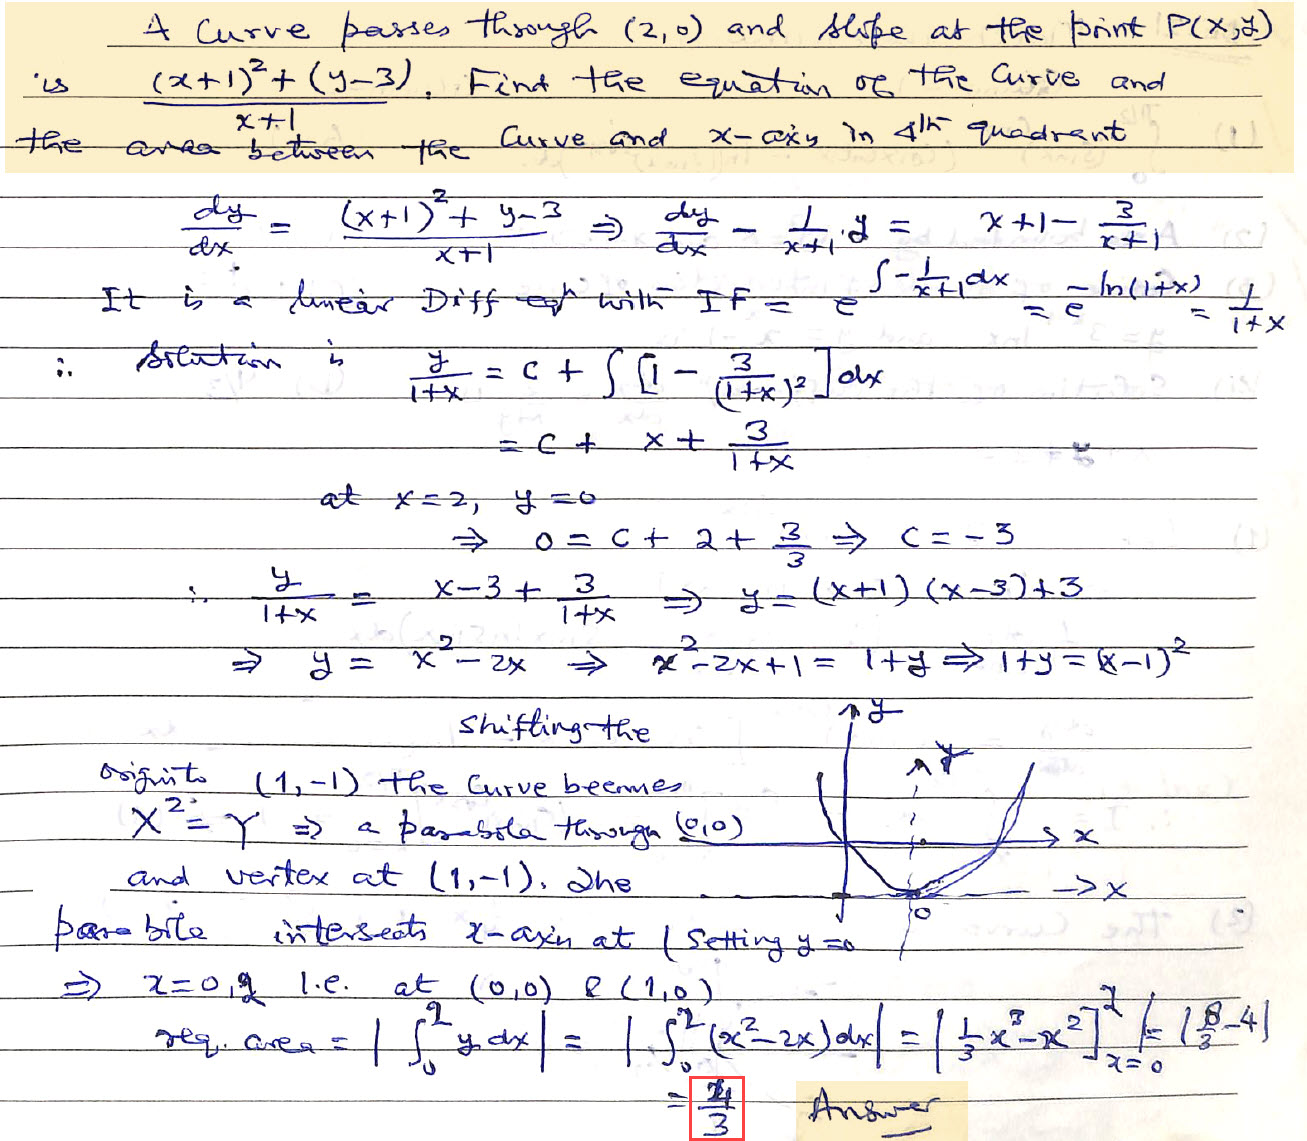 A Curve passes through (2,0) and slope at the point P(x,y)
is (x+1)²+(y-3) / x+1. Find the equation of the Curve and
the area between the Curve and x-axis in 4th quadrant
dy/dx = (x+1)²+y-3 / x+1 ⇒ dy/dx - 1/x+1 . y = x+1 - 3/x+1
It is a linear Diff eqn with IF = e^∫-1/x+1 dx = e^-ln(1+x) = 1/1+x
∴ Solution is y/1+x = c + ∫[1 - 3/(1+x)²]dx
= c + x + 3/1+x
at x=2, y=0
⇒ 0 = c + 2 + 3/3 ⇒ c = -3
∴ y/1+x = x-3 + 3/1+x ⇒ y = (x+1)(x-3)+3
⇒ y = x²-2x ⇒ x²-2x+1 = 1+y ⇒ 1+y = (x-1)²
Shifting the
origin to (1,-1) the Curve becomes
X² = Y ⇒ a parabola through (0,0)
and vertex at (1,-1). The
parabola intersects x-axis at (Setting y=0
⇒ x=0,2 i.e. at (0,0) & (1,0)
req. area = |∫₀² y dx| = |∫₀² (x²-2x)dx| = |1/3 x³-x²]²ₓ₌₀| = |8/3-4|
= 4/3 Answer
y
Y
x
X
O